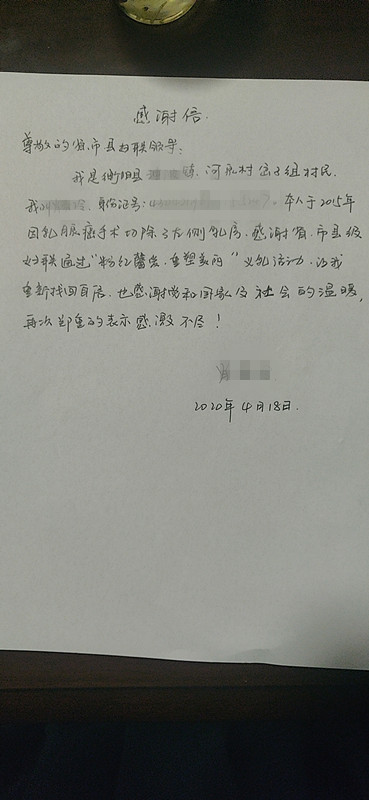 感谢信.
尊敬的省.市县妇联领导:
我是衡阳县 镇.河 村 组村民.
我叫 身份证号: 本人于2015年
因乳腺癌手术切除了左侧乳房.感谢省.市县级
妇联通过"粉红蔷薇.重塑美丽"义乳活动,让我
重新找回自信.也感谢党和国家及社会的温暖,
再次郑重的表示感激不尽!
2020年4月18日.